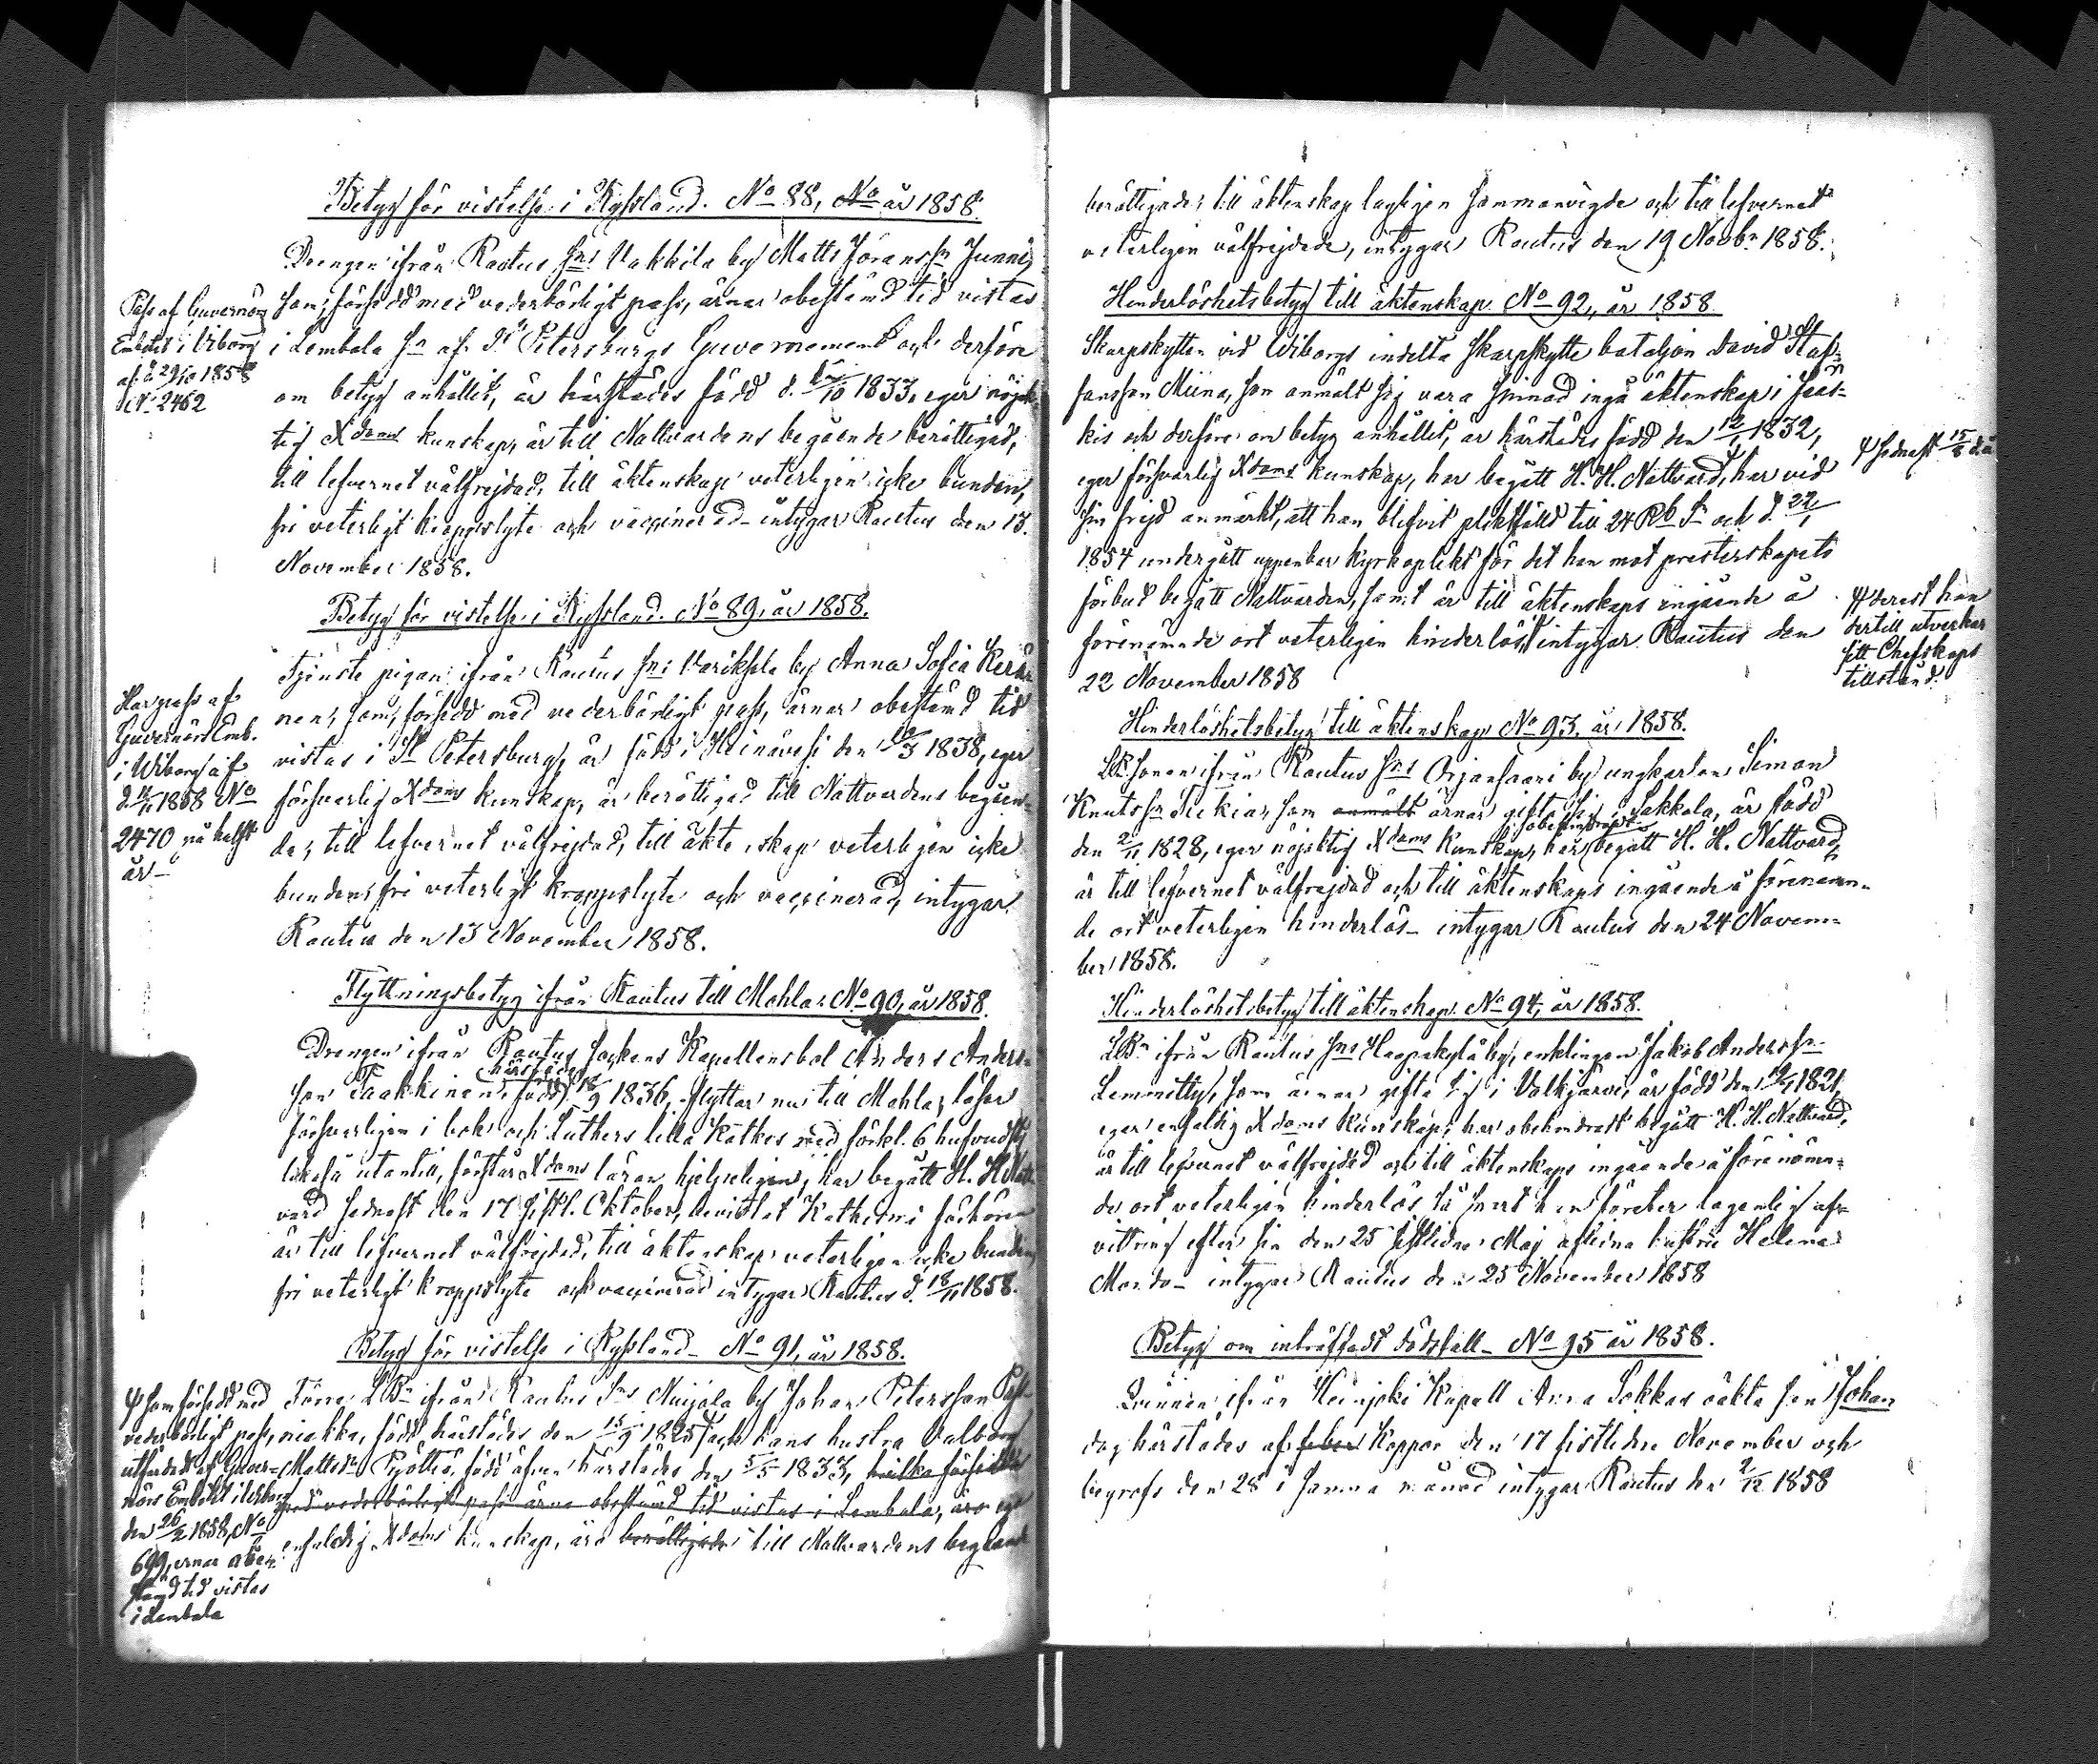 Betyg för vistelse i Ryssland. No 88, No år 1858.
Drengen ifrån Rautus Sns Vakkila by Matts Göransson Junni,
som, försedd med vederbörligt pass, ärnar obestämd tid vistas
i Lembala Sn af St Petersburgs Guvernement och derföre
om betyg anhållit, är härstädes född d. /10 1833, eger nöjak-
tig Xdoms kunskap, är till Nattvardens begående berättigad,
till lefvernet välfrejdad, till äktenskap veterligen icke bunden,
fri veterligt kroppslyte och vaccinerad intygar Rautus den 13.
November 1858.
Pass af Guvernörs
Embetet i Viborg
af d. 29/10 1858
No 2462
Betyg för vistelse i Ryssland. No 89, år 1858.
Tjenste pigan ifrån Rautus Sns Varikselä by Anna Sofia Kerä-
nen, som, försedd med vederbörligt pass, ärnar obestämd tid
vistas i St Petersburg, är född i Heinävesi den /3 1838, eger
försvarlig Xdoms kunskap, är berättigad till Nattvardens begåen-
de, till lefvernet välfrejdad, till äktenskap veterligen icke
bunden, fri veterligt kroppslyte och vaccinerad, intygar
Rautus den 13 November 1858.
Har pass af
Guvernörs Emb.
i Wiborg af
d. /11 1858 No
2470 på halft
år
Flyttningsbetyg ifrån Rautus till Mohla No 90, år 1858.
Drengen ifrån Rautus Sockens Kapellensbol Anders Anders-
son Taakkinen, född härstädes 18/9 1836, flyttar nu till Mohla, läser
försvarligen i bok och Luthers lilla Katkes med förkl. 6 hufvudst.
likaså utantill, förstår Xdoms läran hjelpeligen, har begått H. H. Natt-
vard sednast den 17 sistl. Oktober, bevistat Kathesmi förhören
är till lefvernet välfrejdad, till äktenskap veterligen icke bunden,
fri veterligt kroppslyte och vaccinerad intygar Rautus d. 18/11 1858.
Betyg för vistelse i Ryssland No 91, år 1858.
Förre LBn ifrån Rautus Sns Miijola by Johan Petersson
niakka, född härstädes den 15/9 1825 och hans hustru Valborg
Mattsdr Pyöttiä, född äfven härstädes den 5/5 1833, hvilka försedda
med vederbörligt pass ärna obestämd tid vistas i Lembala, äro ega
enfaldig Xdoms kunskap, äro berättigade till Nattvardens begående
som försedd med
vederbörligt pass,
utfärdadt af Guver-
nörs Embetet i Viborg
den 26/2 1858, No
699, ernar obe-
stämd tid vistas
i Lembala
berättigade, till äktenskap lagligen sammanvigde och till lefvernet
veterligen välfrejdade, intygar Rautus den 19 Novbr 1858.
Hinderlöshetsbetyg till äktenskap No 92, år 1858.
Skarpskytten vid Wiborgs indelta Skarpskytte bataljon David Staf-
fansson Miina, som anmält sig vara sinnad ingå äktenskap i Jääs-
kis och derföre om betyg anhållit, är härstädes född den 12/1 1832,
eger försvarlig Xdoms kunskap, har begått H. H. Nattvard, har vid
sin frejd anmärkt, att han blifvit pliktfälld till 24 Rb Sr och d. 22/1
1854 undergått uppenbar kyrkoplikt för det han mot presterskapets
förbud begått Nattvarden, samt är till äktenskaps ingående å
förenämnde ort veterligen hinderlös, intygar Rautus den
22 November 1858
sednast 15/8 d.å
derest han
dertill utverkar
sitt Chefskaps
tillstånd
Hinderlöshetsbetyg till äktenskap No 93, år 1858.
LB Sonen ifrån Rautus Sns Orjansaari by ungkarlen Simon
Knutsson Kekiar, som anmält ärnar gifta sig i Sakkola, är född
den 2/11 1828, eger nöjaktig Xdoms kunskap, har obehindradt begått H. H. Nattvard,
är till lefvernet välfrejdad och till äktenskaps ingående å förenämn-
de ort veterligen hinderlös intygar Rautus den 24 Novem-
ber 1858.
Hinderlöshetsbetyg till äktenskap No 94, år 1858.
LBn ifrån Rautus Sns Haapakylä by, enklingen Jakob Andersson
Lemmitty, som ärnar gifta sig i Valkjärvi, är född den 1821,
eger enfaldig Xdoms kunskap, har obehindradt begått H. H. Nattvard,
är till lefvernet välfrejdad och till äktenskaps ingående å förenämn-
de ort veterligen hinderlös så snart han företer lagenlig af-
vittring efter sin den 25 sistlidne Maj aflidna hustru Helena
Mando intygar Rautus den 25 November 1858
Betyg om inträffadt dödsfall No 95 år 1858.
Qvinnan ifrån Heinjoki Kapell Anna Sokkas oäkta son Johan
dog härstädes af feber Koppor den 17 sistlidne November och
begrofs den 28 i samma månad intygar Rautus den 2/12 1858